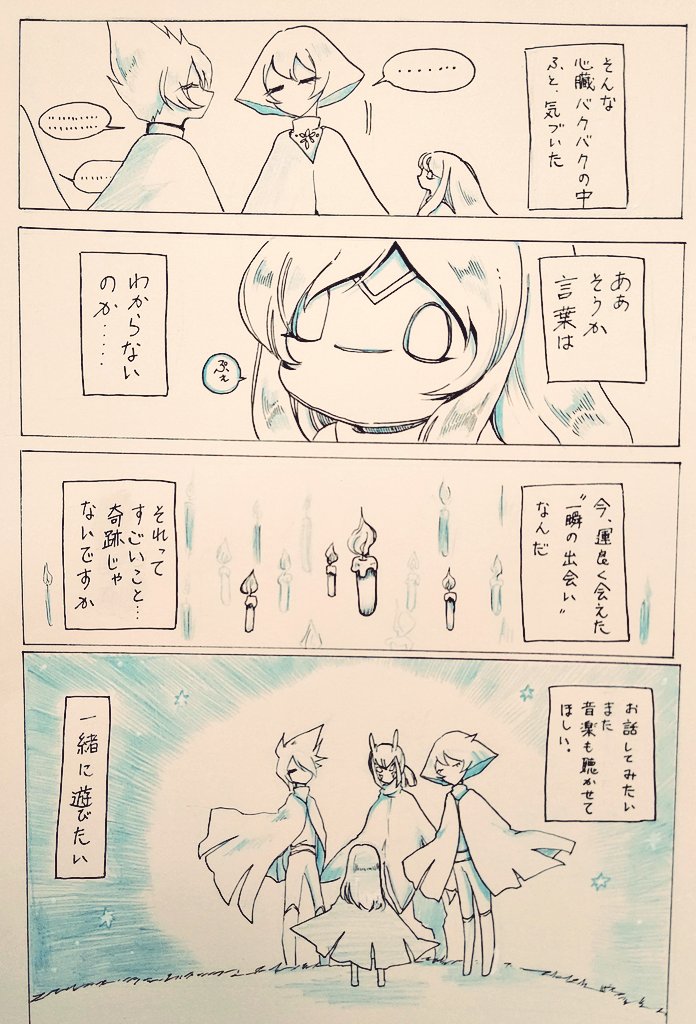 そんな
心臓バクバクの中
ふと、気づいた
・・・・・・
・・・・・・・・
・・・・・・・・
・・・・
ああ
そうか
言葉は
ぷぇ
わからない
のか‥‥
今、運良く会えた
“一瞬の出会い”
なんだ
それって
すごいこと…
奇跡じゃ
ないですか
お話してみたい
また
音楽も聴かせて
ほしい。
一緒に遊びたい